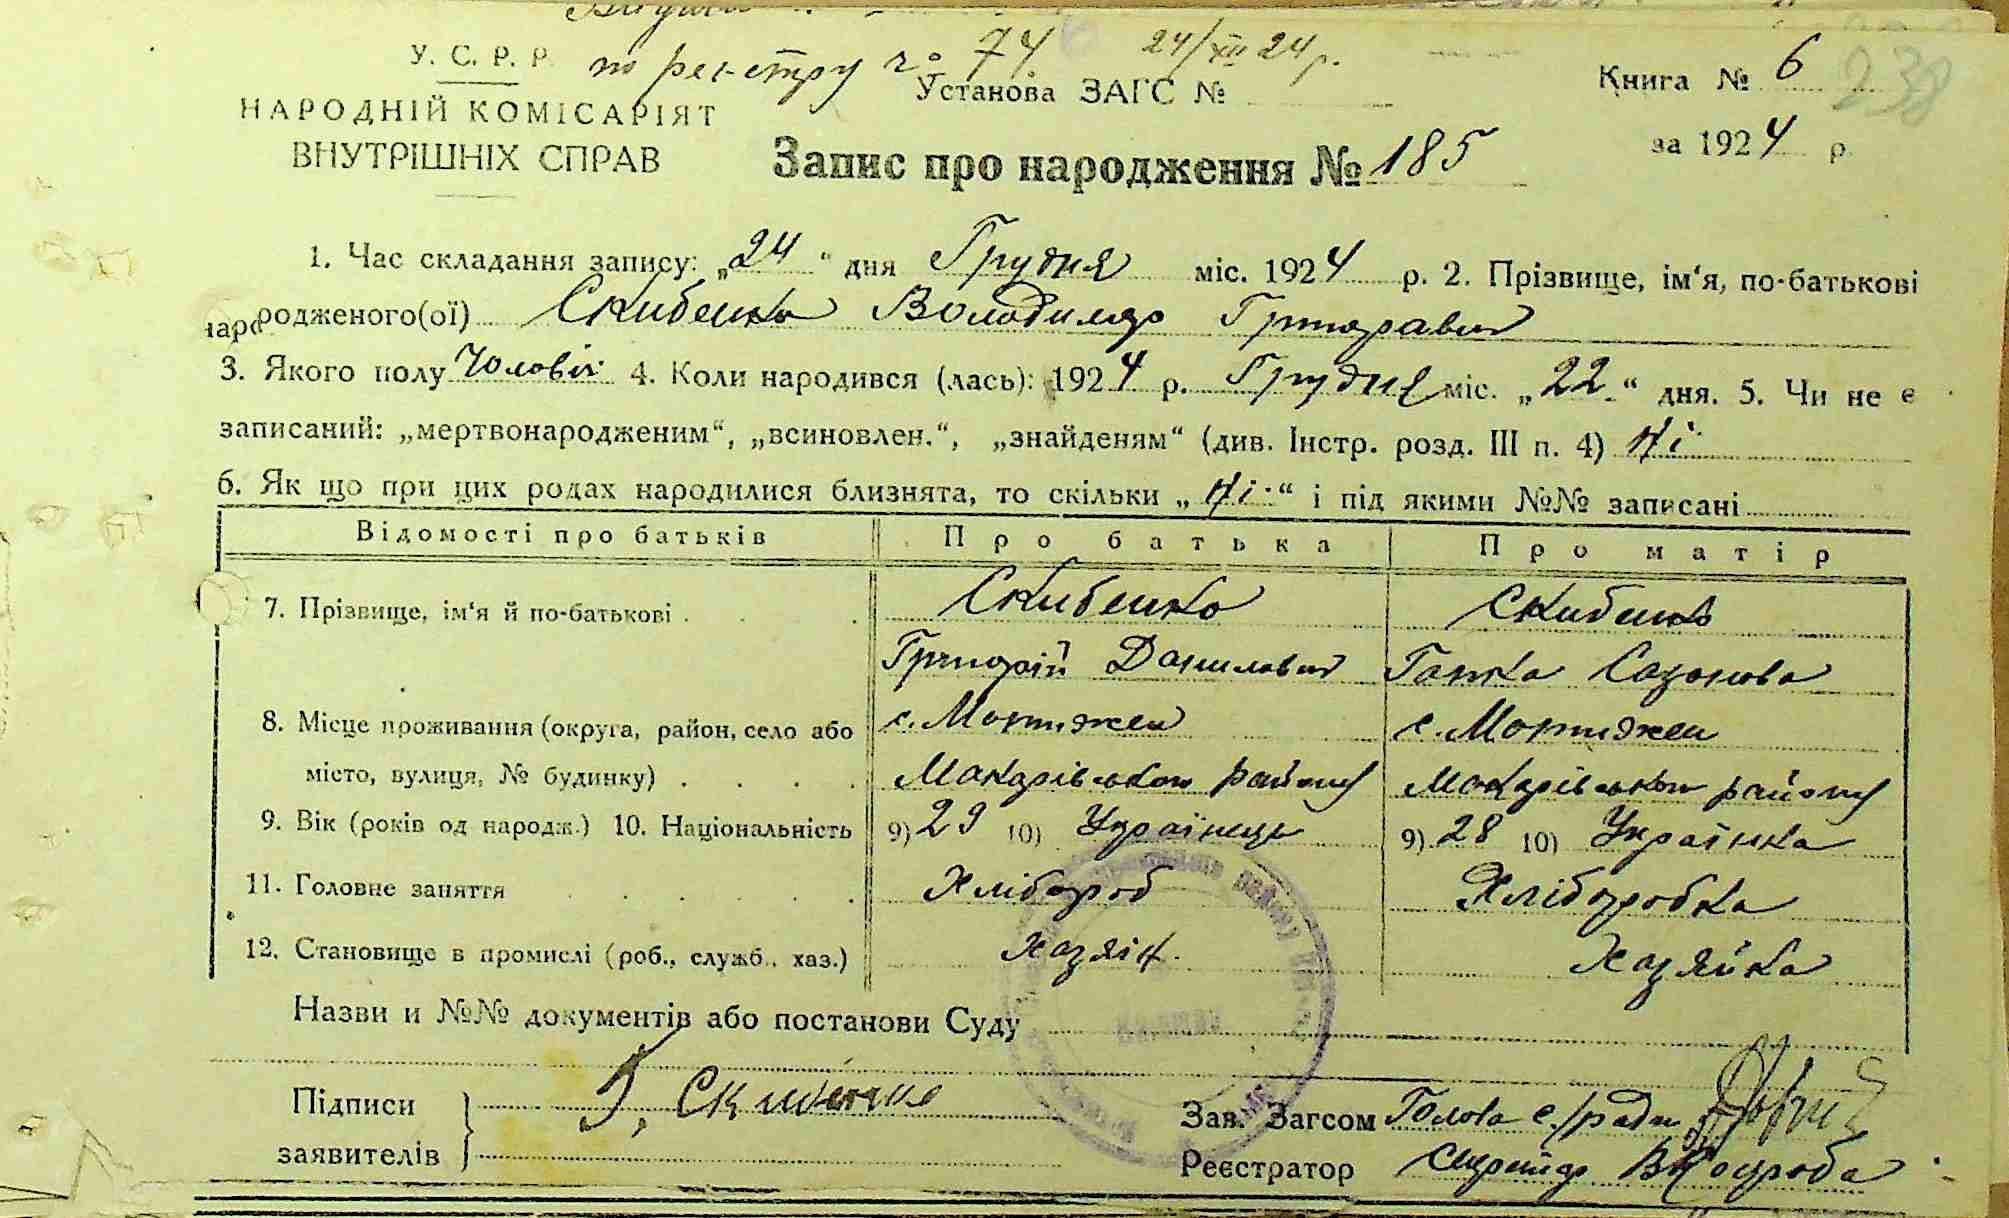 У. С. Р. Р.
по реєстру № 74 24/XII 24 р.
Установа ЗАГС №
Книга № 6
238
НАРОДНІЙ КОМІСАРІЯТ
ВНУТРІШНІХ СПРАВ
Запис про народження № 185
за 1924 р.
1. Час складання запису: „24“ дня Грудня міс. 1924 р. 2. Прізвище, ім‘я, по-батькові
народженого(ої) Скибенко Володимир Григорович
3. Якого полу Чоловіч. 4. Коли народився (лась): 1924 р. Грудня міс. „22“ дня. 5. Чи не є
записаний: „мертвонародженим“, „всиновлен.“, „знайденям“ (див. Інстр. розд. III п. 4) Ні
6. Як що при цих родах народилися близнята, то скільки „Ні“ і під якими №№ записані
Відомості про батьків Про батька Про матір
7. Прізвище, ім‘я й по-батькові . . . Скибенко Скибенко
Григорій Данилович Ганка Сазонова
8. Місце проживання (округа, район, село або с. Мотижен с. Мотижен
місто, вулиця, № будинку) . . . . Макарівського району Макарівського району
9. Вік (років од народж.) 10. Національність 9) 29 10) Українець 9) 28 10) Українка
11. Головне заняття . . . . . . Хлібороб Хліборобка
12. Становище в промислі (роб., служб., хаз.) Хазяїн. Хазяйка
Назви и №№ документів або постанови Суду
Підписи Г. Скибенко
заявителів
Зав. Загсом Голова с/ради
Реєстратор Секретар